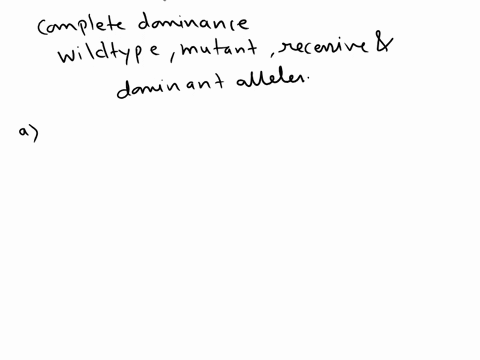 complete dominance
wildtype, mutant, recessive &
dominant alleles.
a)